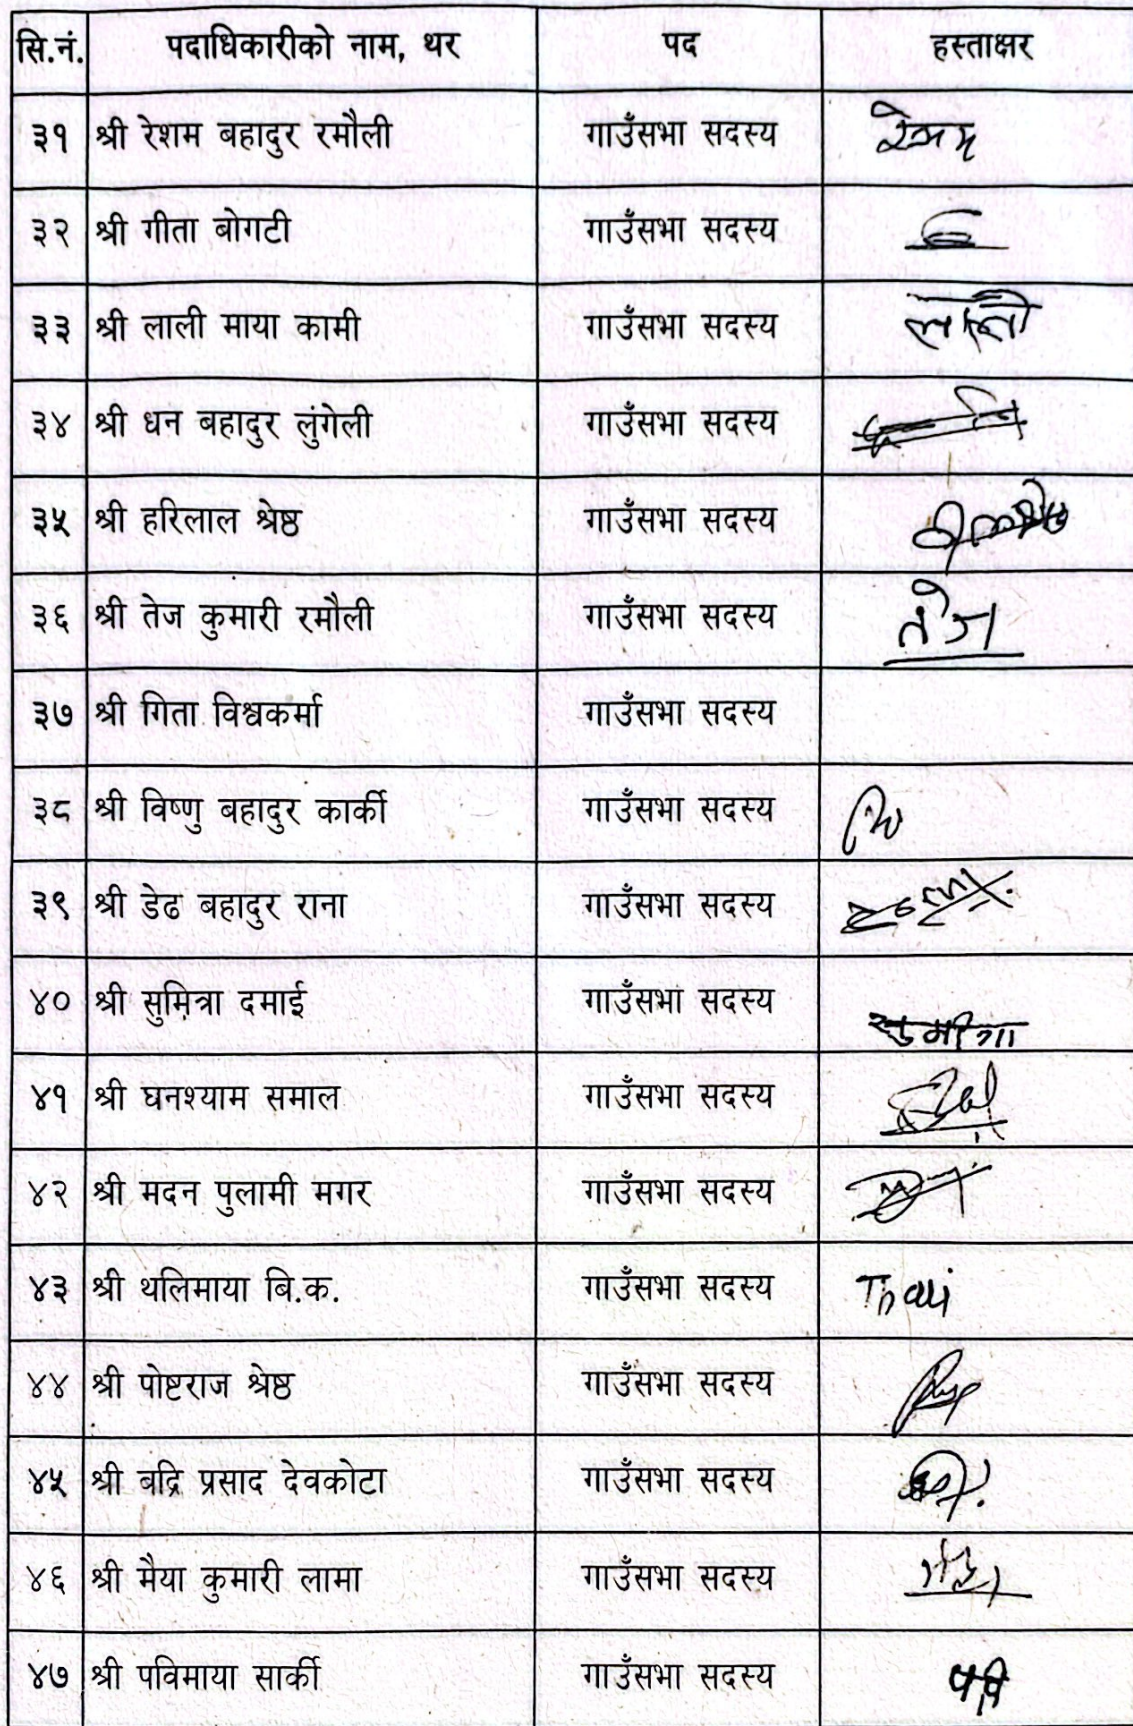 सि.नं. पदाधिकारीको नाम, थर पद हस्ताक्षर
३१ श्री रेशम बहादुर रमौली गाउँसभा सदस्य रेशम
३२ श्री गीता बोगटी गाउँसभा सदस्य
३३ श्री लाली माया कामी गाउँसभा सदस्य
३४ श्री धन बहादुर लुंगेली गाउँसभा सदस्य
३५ श्री हरिलाल श्रेष्ठ गाउँसभा सदस्य
३६ श्री तेज कुमारी रमौली गाउँसभा सदस्य तेज
३७ श्री गिता विश्वकर्मा गाउँसभा सदस्य
३८ श्री विष्णु बहादुर कार्की गाउँसभा सदस्य
३९ श्री डेढ बहादुर राना गाउँसभा सदस्य
४० श्री सुमित्रा दमाई गाउँसभा सदस्य सुमीत्रा
४१ श्री घनश्याम समाल गाउँसभा सदस्य
४२ श्री मदन पुलामी मगर गाउँसभा सदस्य
४३ श्री थलिमाया बि.क. गाउँसभा सदस्य Thali
४४ श्री पोष्टराज श्रेष्ठ गाउँसभा सदस्य
४५ श्री बद्रि प्रसाद देवकोटा गाउँसभा सदस्य
४६ श्री मैया कुमारी लामा गाउँसभा सदस्य
४७ श्री पविमाया सार्की गाउँसभा सदस्य पवि